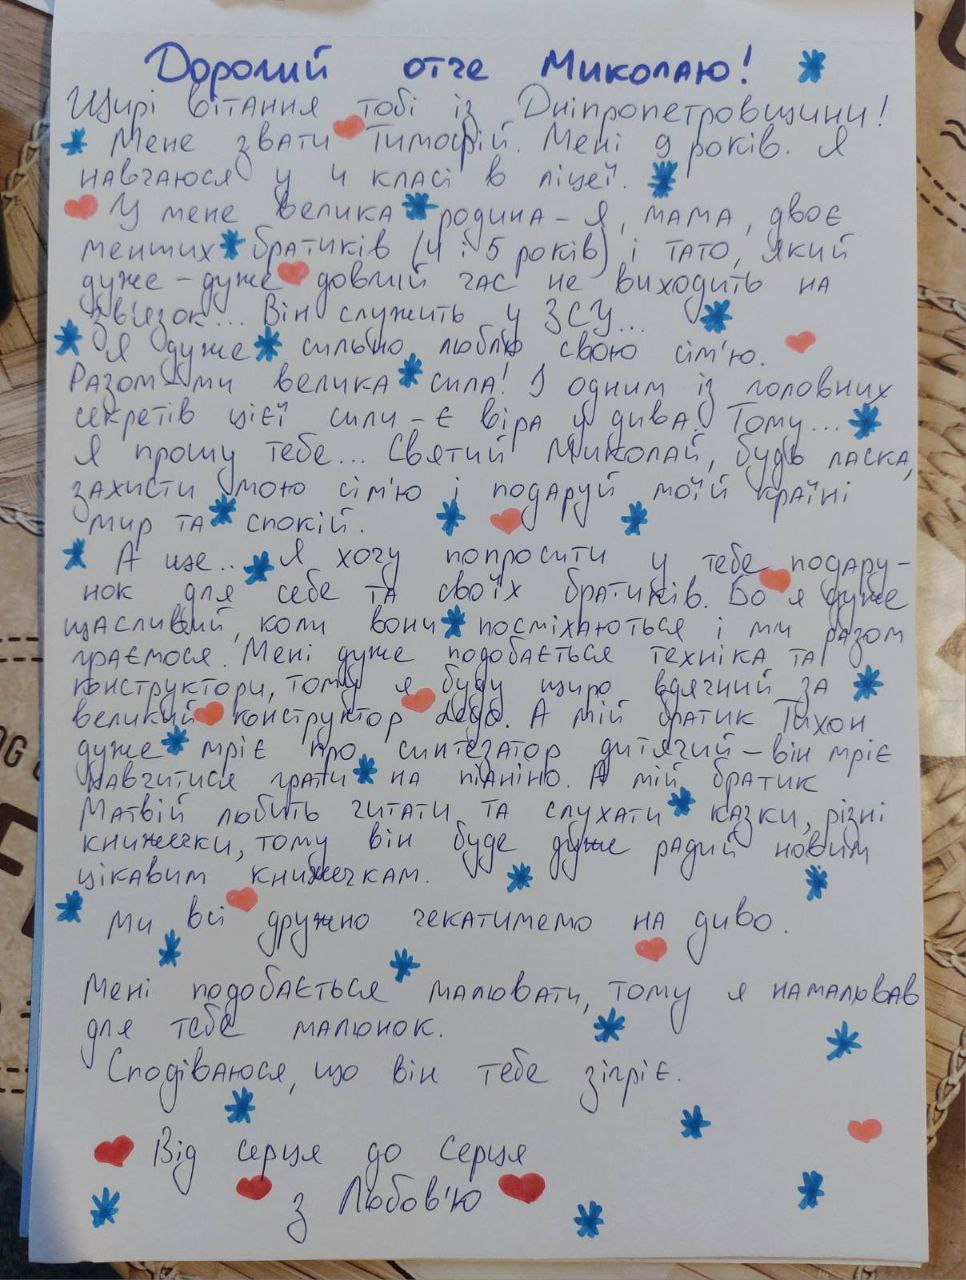 Дорогий отче Миколаю!
Щирі вітання тобі із Дніпропетровщини!
Мене звати Тимофій. Мені 9 років. Я
навчаюся у 4 класі в ліцеї.
У мене велика родина - Я, мама, двоє
менших братиків (4 і 5 років) і тато, який
дуже - дуже довгий час не виходить на
зв'язок... Він служить у ЗСУ...
Я дуже сильно люблю свою сім'ю.
Разом ми велика сила! І одним із головних
секретів цієї сили - є віра у дива. Тому...
Я прошу тебе... Святий Миколай, будь ласка,
захисти мою сім'ю і подаруй моїй країні
мир та спокій.
А ще... Я хочу попросити у тебе подару-
нок для себе та своїх братиків. Бо я дуже
щасливий, коли вони посміхаються і ми разом
граємося. Мені дуже подобається техніка та
конструктори, тому я буду щиро вдячний за
великий конструктор Лего. А мій братик Тихон
дуже мріє про синтезатор дитячий - він мріє
навчитися грати на піаніно. А мій братик
Матвій любить читати та слухати казки, різні
книжечки, тому він буде дуже радий новим
цікавим книжечкам.
Ми всі дружно чекатимемо на диво.
Мені подобається малювати, тому я намалював
для тебе малюнок.
Сподіваюся, що він тебе зігріє.
Від серця до серця
з Любов'ю